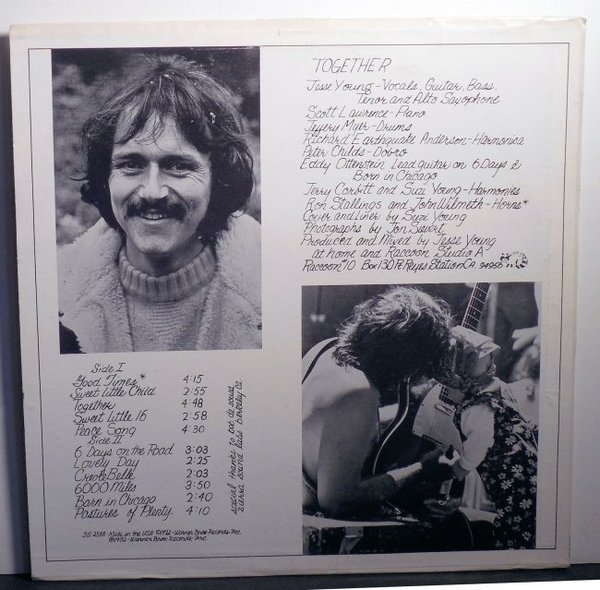 TOGETHER
Jesse Young - Vocals, Guitar, Bass,
Tenor and Alto Saxophone
Scott Lawrence - Piano
Jeffery Myer - Drums
Richard Earthquake Anderson - Harmonica
Peter Childs - Dobro
Eddy Ottenstein Lead guitar on 6 Days &
Born in Chicago
Jerry Corbitt and Suzi Young - Harmonies
Ron Stallings and John Wilmeth - Horns*
Cover and Liner by Suzi Young
Photographs by Jon Sievert
Produced and Mixed by Jesse Young
at home and Raccoon Studio A
Raccoon #10 Box 130 Pt. Reyes Station CA. 94956
Side I
Good Times* 4:15
Sweet Little Child 2:55
Together 4:48
Sweet Little 16 2:58
Peace Song 4:30
Side II
6 Days on the Road 3:03
Lovely Day 2:25
Creole Belle 2:03
6000 Miles 3:50
Born in Chicago 2:40
Pastures of Plenty 4:10
special thanks to
sierra sound berkeley ca
BS 2588 - Made in the USA 1972 - Warner Bros. Records Inc.
1972 - Warner Bros. Records, Inc.